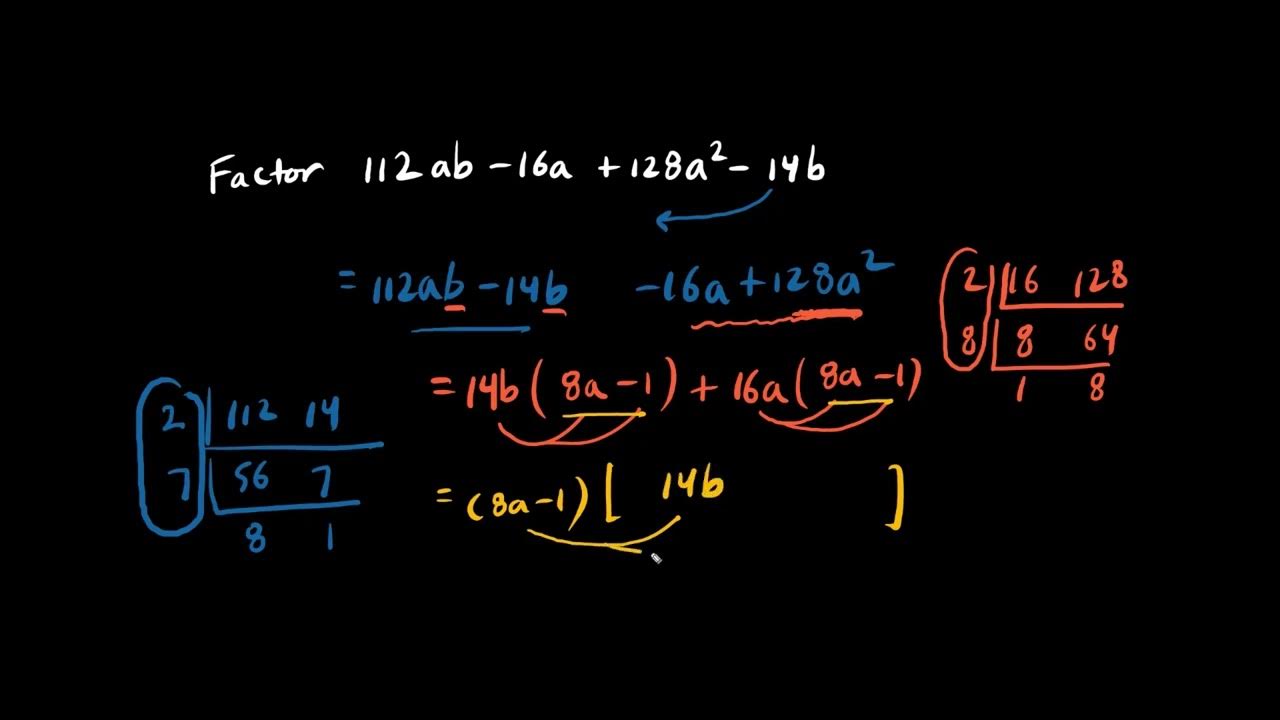 Factor 112ab - 16a + 128a² - 14b
= 112ab - 14b - 16a + 128a²
2 | 16 128
8 | 8 64
1 8
= 14b ( 8a - 1 ) + 16a ( 8a - 1 )
2 | 112 14
7 | 56 7
8 1
= (8a - 1) [ 14b ]